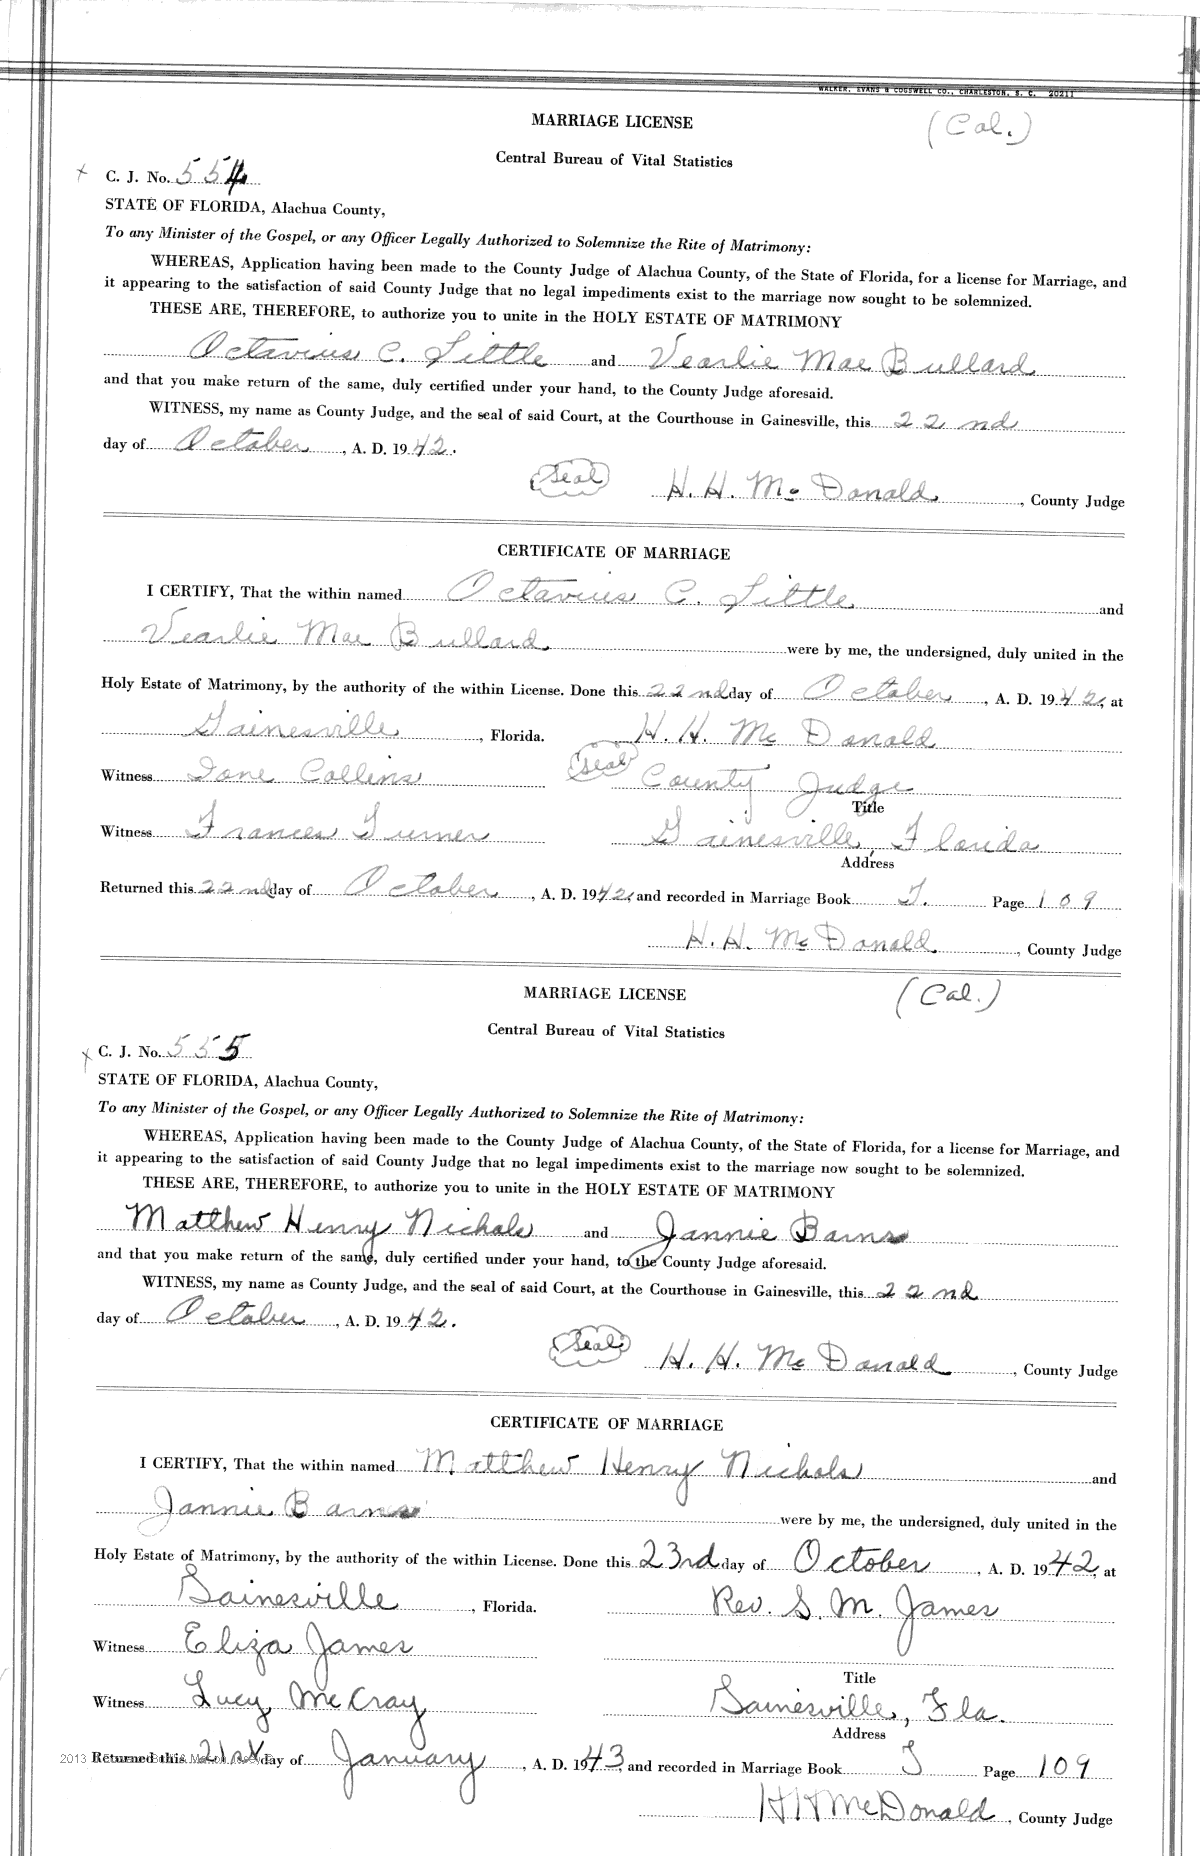 WALKER, EVANS & COGSWELL CO., CHARLESTON, S. C. 20211
MARRIAGE LICENSE (Col.)
Central Bureau of Vital Statistics
x C. J. No. 554
STATE OF FLORIDA, Alachua County,
To any Minister of the Gospel, or any Officer Legally Authorized to Solemnize the Rite of Matrimony:
WHEREAS, Application having been made to the County Judge of Alachua County, of the State of Florida, for a license for Marriage, and
it appearing to the satisfaction of said County Judge that no legal impediments exist to the marriage now sought to be solemnized.
THESE ARE, THEREFORE, to authorize you to unite in the HOLY ESTATE OF MATRIMONY
Octavius C. Little and Vearlie Mae Bullard
and that you make return of the same, duly certified under your hand, to the County Judge aforesaid.
WITNESS, my name as County Judge, and the seal of said Court, at the Courthouse in Gainesville, this 22nd
day of October, A. D. 1942.
Seal H. H. McDonald, County Judge
CERTIFICATE OF MARRIAGE
I CERTIFY, That the within named Octavius C. Little and
Vearlie Mae Bullard were by me, the undersigned, duly united in the
Holy Estate of Matrimony, by the authority of the within License. Done this 22nd day of October, A. D. 1942, at
Gainesville, Florida. H. H. McDonald
Witness Ione Collins Seal County Judge
Title
Witness Frances Turner Gainesville, Florida
Address
Returned this 22nd day of October, A. D. 1942, and recorded in Marriage Book T. Page 109
H. H. McDonald, County Judge
MARRIAGE LICENSE (Col.)
Central Bureau of Vital Statistics
x C. J. No. 555
STATE OF FLORIDA, Alachua County,
To any Minister of the Gospel, or any Officer Legally Authorized to Solemnize the Rite of Matrimony:
WHEREAS, Application having been made to the County Judge of Alachua County, of the State of Florida, for a license for Marriage, and
it appearing to the satisfaction of said County Judge that no legal impediments exist to the marriage now sought to be solemnized.
THESE ARE, THEREFORE, to authorize you to unite in the HOLY ESTATE OF MATRIMONY
Matthew Henry Nichols and Jannie Barns
and that you make return of the same, duly certified under your hand, to the County Judge aforesaid.
WITNESS, my name as County Judge, and the seal of said Court, at the Courthouse in Gainesville, this 22nd
day of October, A. D. 1942.
Seal H. H. McDonald, County Judge
CERTIFICATE OF MARRIAGE
I CERTIFY, That the within named Matthew Henry Nichols and
Jannie Barns were by me, the undersigned, duly united in the
Holy Estate of Matrimony, by the authority of the within License. Done this 23rd day of October, A. D. 1942, at
Gainesville, Florida. Rev. S. M. James
Witness Eliza James
Title
Witness Lucy McCray Gainesville, Fla.
Address
2013 Returned this 21st day of January, A. D. 1943, and recorded in Marriage Book T Page 109
H H McDonald, County Judge